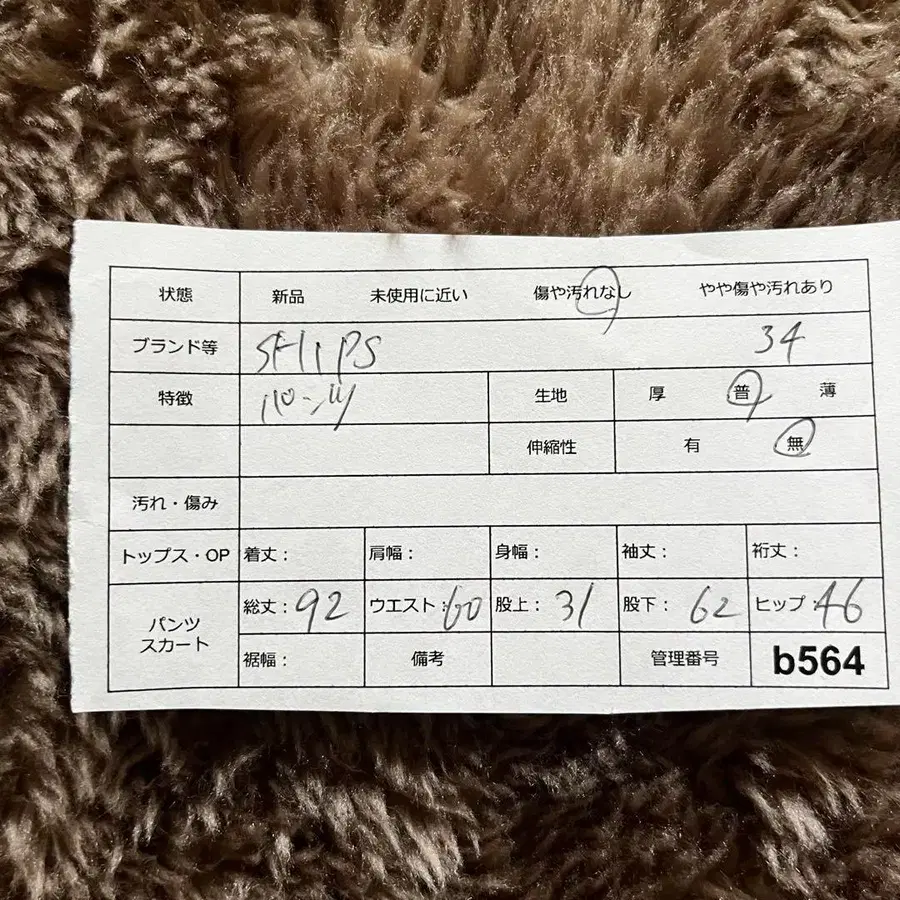 状態 新品 未使用に近い 傷や汚れなし やや傷や汚れあり
ブランド等 SHIPS 34
特徴 パンツ 生地 厚 普 薄
伸縮性 有 無
汚れ・傷み
トップス・OP 着丈： 肩幅： 身幅： 袖丈： 裄丈：
パンツ スカート 総丈：92 ウエスト：60 股上：31 股下：62 ヒップ：46
裾幅： 備考 管理番号 b564